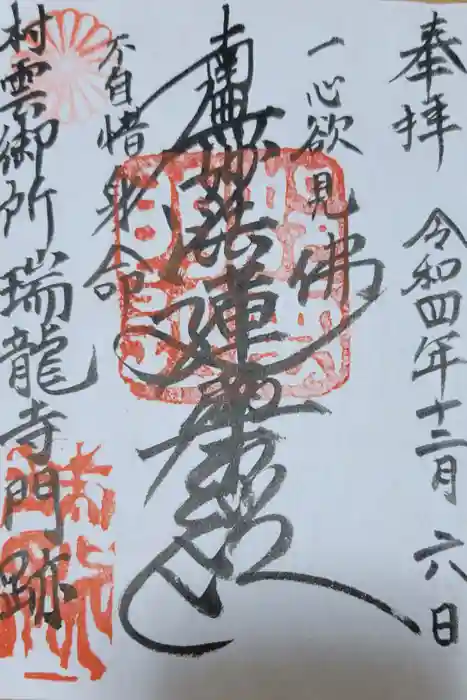 奉拝 令和四年十二月六日
一心欲見佛
南無妙法蓮華経
不自惜身命
村雲御所瑞龍寺門跡